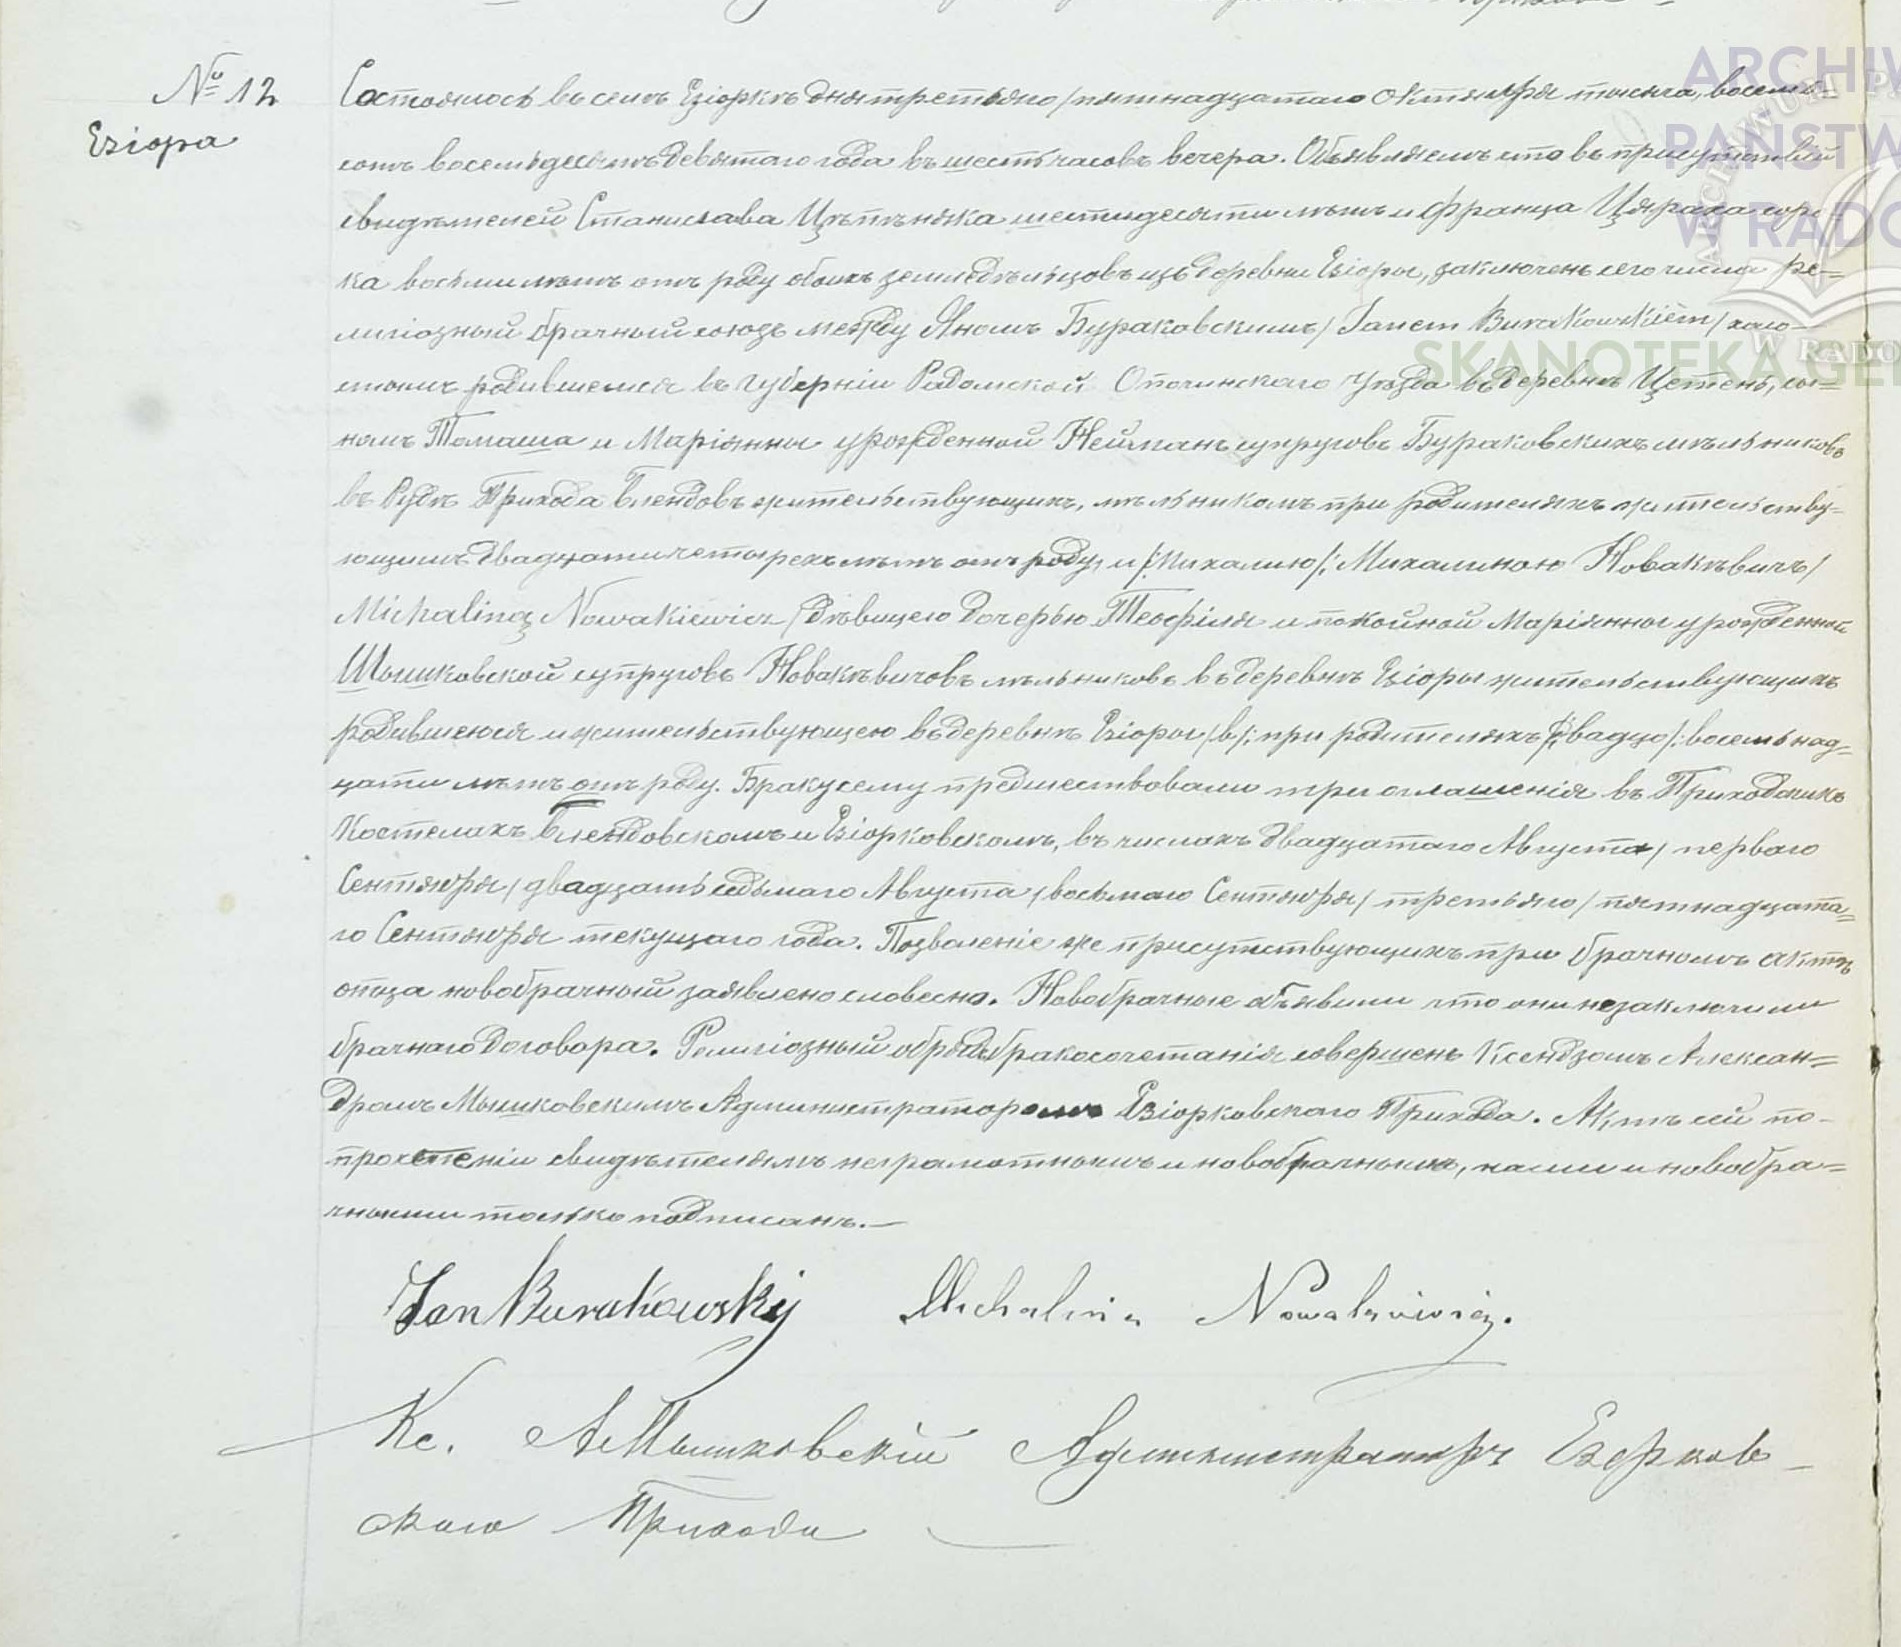 № 12
Езіора
Состоялось въ селѣ Езіоркѣ дня третьяго / пятнадцатаго Октября тысяча, восемь-
сотъ восемьдесятъ девятаго года въ шесть часовъ вечера. Объявляемъ что въ присутствіи
свидѣтелей Станислава шестидесяти лѣтъ и Франца соро-
ка восьми лѣтъ отъ роду обоихъ земледѣльцовъ изъ деревни Езіоры, заключенъ сего числа ре-
лигіозный брачный союзъ между Яномъ Бураковскимъ / Janem Burakowskiem / холо-
стымъ родившемся въ Губерніи Радомской Опочинскаго уѣзда въ деревнѣ Цетень, сы-
номъ Томаша и Маріянны урожденной Нейманъ супруговъ Бураковскихъ мѣльниковъ
въ Рудѣ Прихода Блендовъ жительствующихъ, мѣльникомъ при родителяхъ жительству-
ющимъ двадцати четырехъ лѣтъ отъ роду, и /:Михалию/: Михалиною Новакѣвичъ /
Michaliną Nowakiewicz / дѣвицею дочерью Теофіля и покойной Маріянны урожденной
Шышковской супруговъ Новакѣвичовъ мѣльниковъ въ деревнѣ Езіоры жительствующихъ
родившеюся и жительствующею въ деревнѣ Езіоры /в/: при родителяхъ /:двадцо/: восемьнад-
цати лѣтъ отъ роду. Браку сему предшествовали три оглашенія въ Приходскихъ
Костелахъ Блендовскомъ и Езіорковскомъ, въ числахъ двадцатаго Августа / перваго
Сентября / двадцать седьмаго Августа / восьмаго Сентября / третьяго / пятнадцата-
го Сентября текущаго года. Позволеніе же присутствующихъ при брачномъ актѣ
отца новобрачный заявлено словесно. Новобрачные объявили что они незаключили
брачнаго договора. Религіозный обрядъ бракосочетанія совершенъ Ксендзомъ Алексан-
дромъ Мышковскимъ Администраторомъ Езіорковскаго Прихода. Актъ сей по-
прочтеніи свидѣтелямъ неграмотнымъ и новобрачнымъ, нами и новобра-
чными только подписанъ.—
Jan Burakowskij Michalina Nowakiewicz.
Кс. А Мышковскій Администраторъ Езерков-
скаго Прихода
ARCHIW
PAŃSTW
W RADO
SKANOTEKA GE